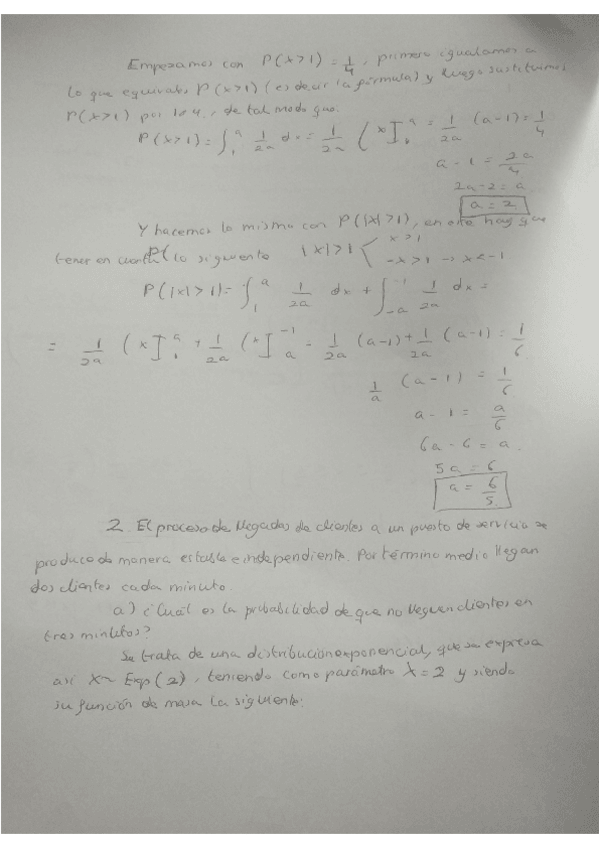 Empezamos con P(x>1) = 1/4, primero igualamos a
lo que equivale P(x>1) (es decir la fórmula) y luego sustituimos
P(x>1) por 1/4, de tal modo que:
P(x>1) = ∫₁ᵃ 1/2a dx = 1/2a (x]₁ᵃ = 1/2a (a-1) = 1/4
a - 1 = 2a/4
2a - 2 = a
a = 2
Y hacemos lo mismo con P(|x|>1), en este hay que
tener en cuenta lo siguiente |x|>1 < x>1
-x>1 → x<-1
P(|x|>1) = ∫₁ᵃ 1/2a dx + ∫₋ₐ⁻¹ 1/2a dx =
= 1/2a (x]₁ᵃ + 1/2a (x]ₐ⁻¹ = 1/2a (a-1) + 1/2a (a-1) = 1/6
1/a (a-1) = 1/6
a - 1 = a/6
6a - 6 = a
5a = 6
a = 6/5
2. El proceso de llegadas de clientes a un puesto de servicio se
produce de manera estable e independiente. Por término medio llegan
dos clientes cada minuto.
a) ¿Cuál es la probabilidad de que no lleguen clientes en
tres minutos?
Se trata de una distribución exponencial, que se expresa
así x~ Exp(2), teniendo como parámetro λ = 2 y siendo
su función de masa la siguiente: